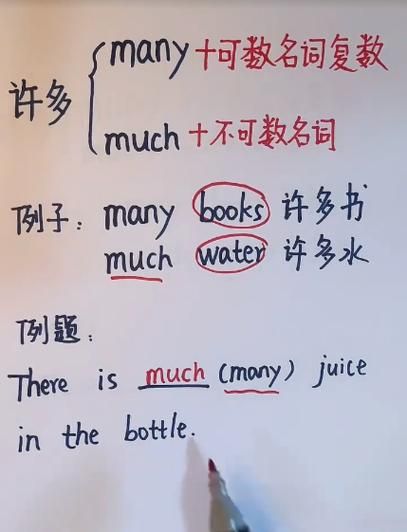 many+可数名词复数
许多
much+不可数名词
例子：many books 许多书
much water 许多水
例题：
There is much (many) juice
in the bottle.